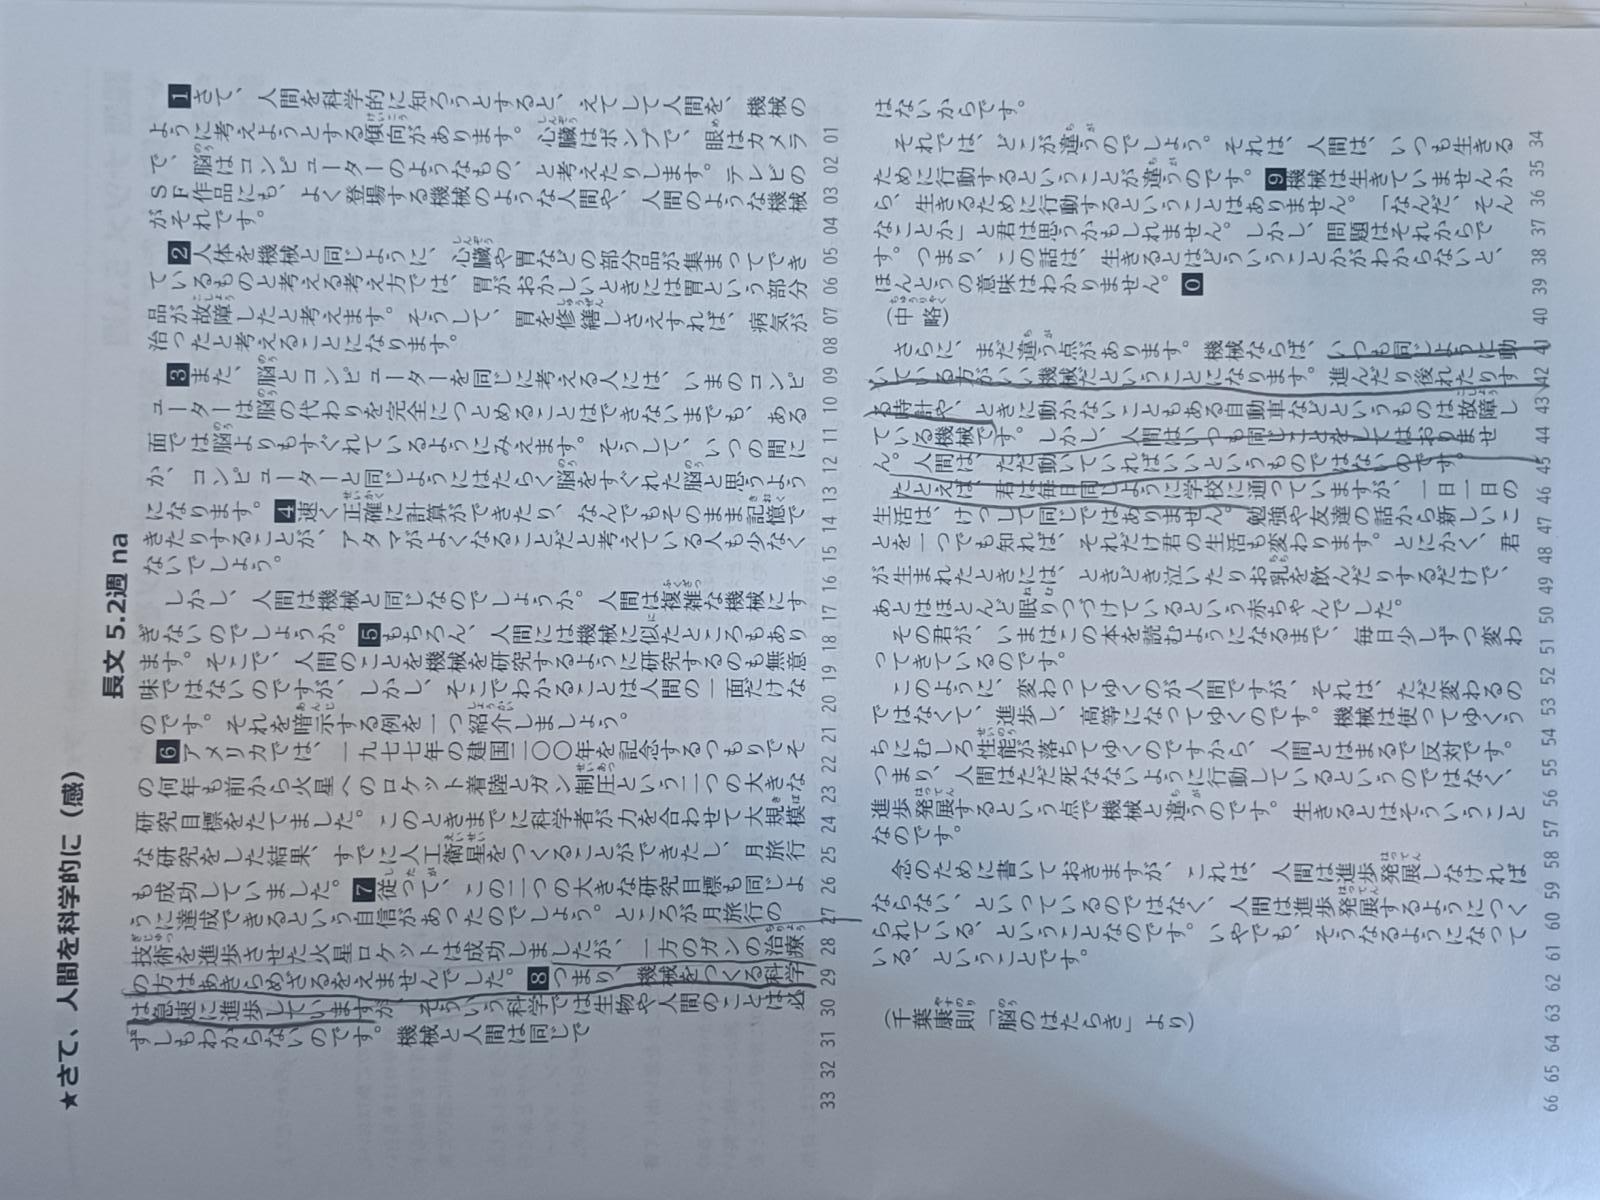 ★さて、人間を科学的に（感）
長文 5.2週 na
1さて、人間を科学的に知ろうとすると、えてして人間を、機械の
ように考えようとする傾向があります。心臓はポンプで、眼はカメラ
で、脳はコンピューターのようなもの、と考えたりします。テレビの
ＳＦ作品にも、よく登場する機械のような人間や、人間のような機械
がそれです。
2人体を機械と同じように、心臓や胃などの部分品が集まってでき
ているものと考える考え方では、胃がおかしいときには胃という部分
品が故障したと考えます。そうして、胃を修繕しさえすれば、病気が
治ったと考えることになります。
3また、脳とコンピューターを同じに考える人には、いまのコンピ
ューターは脳の代わりを完全につとめることはできないまでも、ある
面では脳よりもすぐれているようにみえます。そうして、いつの間に
か、コンピューターと同じようにはたらく脳をすぐれた脳と思うよう
になります。4速く正確に計算ができたり、なんでもそのまま記憶で
きたりすることが、アタマがよくなることだと考えている人も少なく
ないでしょう。
しかし、人間は機械と同じなのでしょうか。人間は複雑な機械にす
ぎないのでしょうか。5もちろん、人間には機械に似たところもあり
ます。そこで、人間のことを機械を研究するように研究するのも無意
味ではないのですが、しかし、そこでわかることは人間の一面だけな
のです。それを暗示する例を一つ紹介しましょう。
6アメリカでは、一九七七年の建国二〇〇年を記念するつもりでそ
の何年も前から火星へのロケット着陸とガン制圧という二つの大きな
研究目標をたてました。このときまでに科学者が力を合わせて大規模
な研究をした結果、すでに人工衛星をつくることができたし、月旅行
も成功していました。7従って、この二つの大きな研究目標も同じよ
うに達成できるという自信があったのでしょう。ところが月旅行の
技術を進歩させた火星ロケットは成功しましたが、一方のガンの治療
の方はあきらめざるをえませんでした。8つまり、機械をつくる科学
は急速に進歩していますが、そういう科学では生物や人間のことは必
ずしもわからないのです。機械と人間は同じで
01 02 03 04 05 06 07 08 09 10 11 12 13 14 15 16 17 18 19 20 21 22 23 24 25 26 27 28 29 30 31 32 33
はないからです。
それでは、どこが違うのでしょう。それは、人間は、いつも生きる
ために行動するということが違うのです。9機械は生きていませんか
ら、生きるために行動するということはありません。「なんだ、そん
なことか」と君は思うかもしれません。しかし、問題はそれからで
す。つまり、この話は、生きるとはどういうことかがわからないと、
ほんとうの意味はわかりません。0
（中略）
さらに、まだ違う点があります。機械ならば、いつも同じように動
いている方がいい機械だということになります。進んだり後れたりす
る時計や、ときに動かないこともある自動車などというものは故障し
ている機械です。しかし、人間はいつも同じことをしてはおりませ
ん。人間は、ただ動いていればいいというものではないのです。
たとえば、君は毎日同じように学校に通っていますが、一日一日の
生活は、けっして同じではありません。勉強や友達の話から新しいこ
とを一つでも知れば、それだけ君の生活も変わります。とにかく、君
が生まれたときには、ときどき泣いたりお乳を飲んだりするだけで、
あとはほとんど眠りつづけているという赤ちゃんでした。
その君が、いまはこの本を読むようになるまで、毎日少しずつ変わ
ってきているのです。
このように、変わってゆくのが人間ですが、それは、ただ変わるの
ではなくて、進歩し、高等になってゆくのです。機械は使ってゆくう
ちにむしろ性能が落ちてゆくのですから、人間とはまるで反対です。
つまり、人間はただ死なないように行動しているというのではなく、
進歩発展するという点で機械と違うのです。生きるとはそういうこと
なのです。
念のために書いておきますが、これは、人間は進歩発展しなければ
ならない、といっているのではなく、人間は進歩発展するようにつく
られている、ということなのです。いやでも、そうなるようになって
いる、ということです。
（千葉康則「脳のはたらき」より）
34 35 36 37 38 39 40 41 42 43 44 45 46 47 48 49 50 51 52 53 54 55 56 57 58 59 60 61 62 63 64 65 66